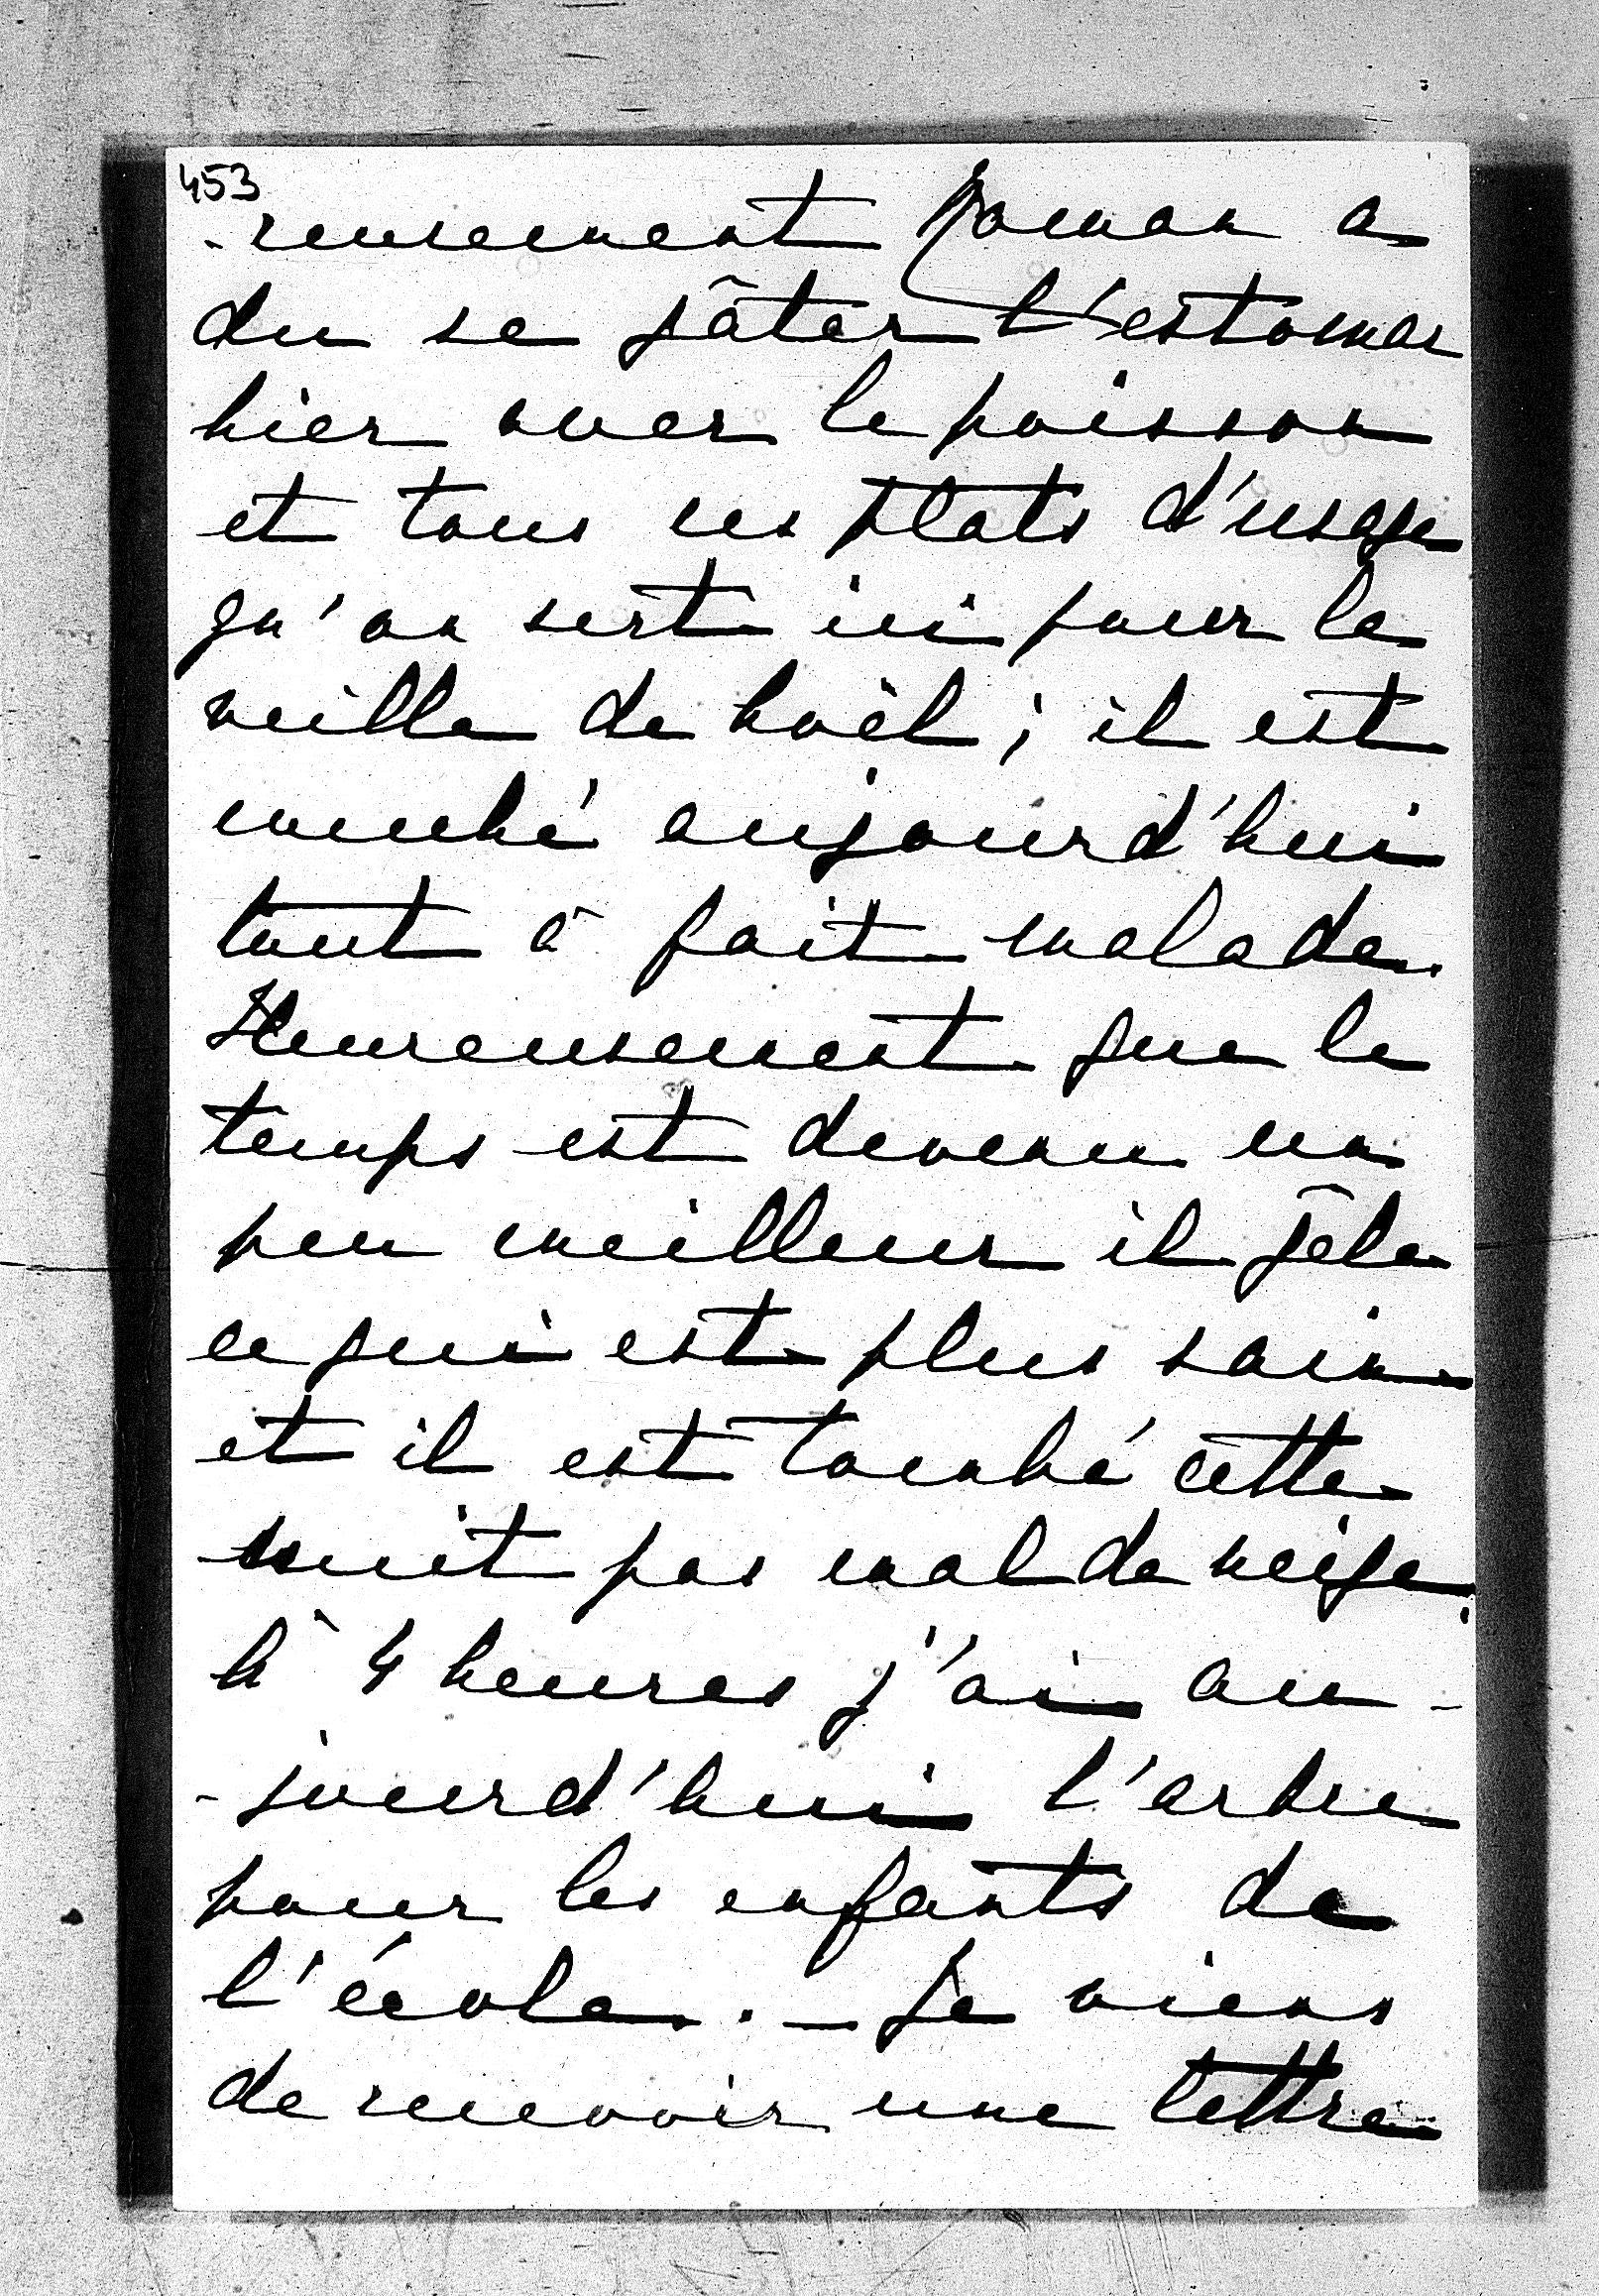 453
-reusement Roman a
du se gâter l'estomac
hier avec le poisson
et tous ces plats d'usage
qu'on sert ici pour la
veille de Noël ; il est
couché aujourd'hui
tout à fait malade.
Heureusement que le
temps est devenu un
peu meilleur il gèle
ce qui est plus sain
et il est tombé cette
nuit pas mal de neige.
à 4 heures j'ai au-
-jourd'hui l'arbre
pour les enfants de
l'école. - Je viens
de recevoir une lettre